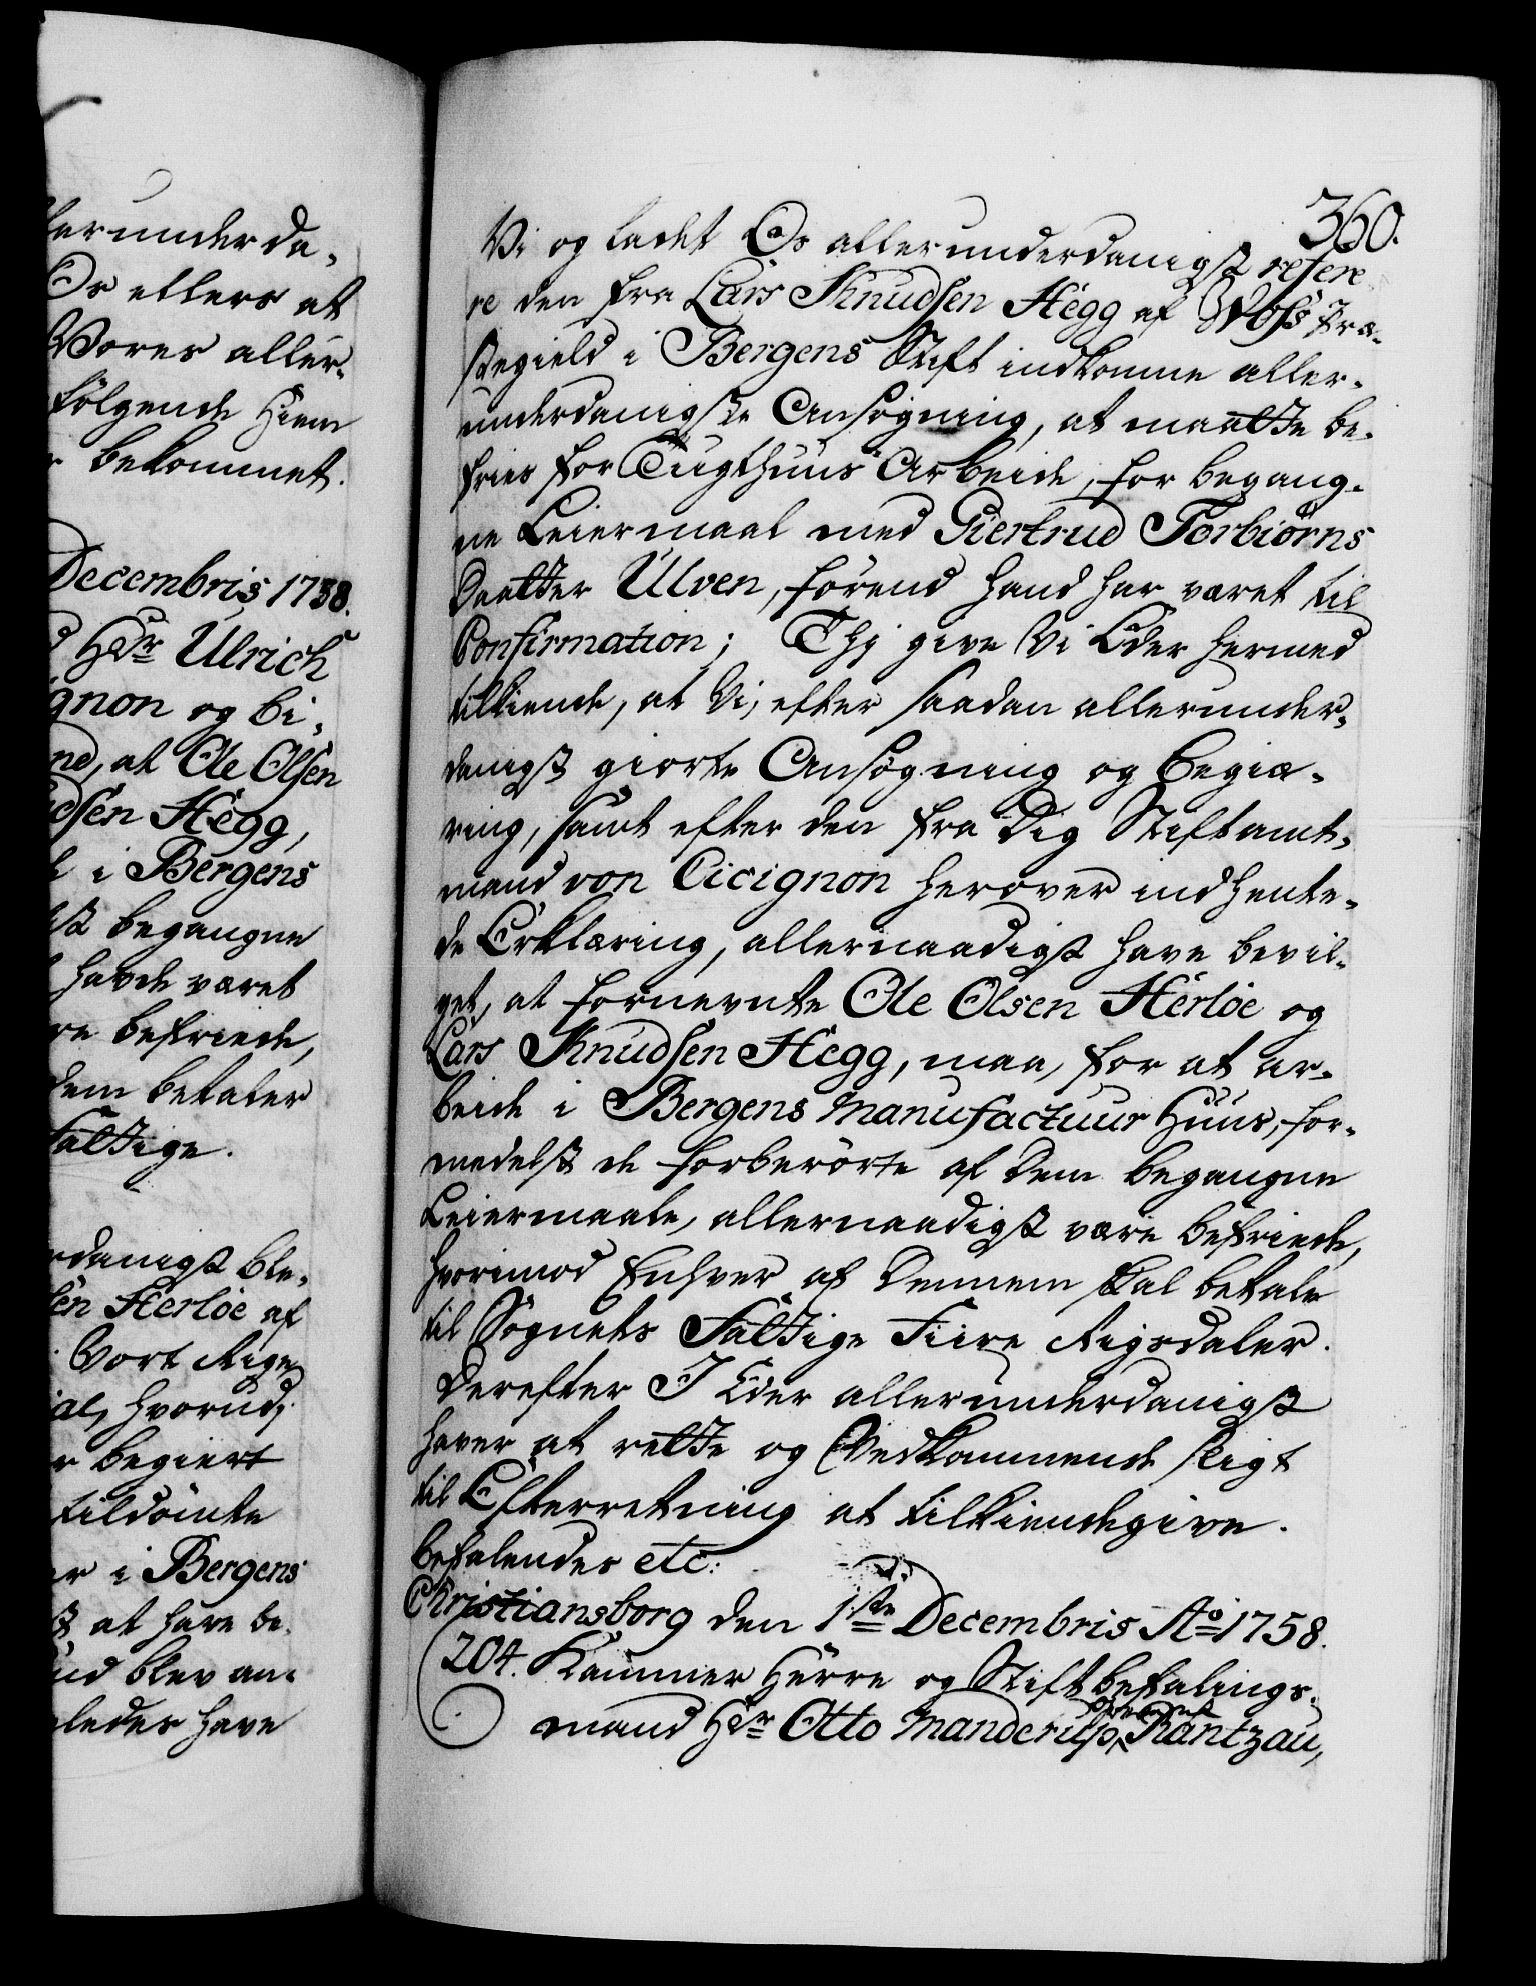 lerunderda-
Os ellers at
Vores aller-
følgende Hiem
bekommet.
Decembris 1758.
Hr Ulrich
gnon og bi-
nd, at Ole Olsen
udsen Hegg,
i Bergens
st begangne
havde været
re befriede,
dem betaler
Fattige.
rdanigst ble-
sen Herløe af
Vort Rige
al, hvorud-
r begiert
tildömte
er i Bergens
at have be-
ind blev an-
ledes have
360.
Vi og ladet Os allerunderdanigst refere
re den fra Lars Knudsen Hegg af Woss Præ-
stegield i Bergens Stift indkomne aller-
underdanigste Ansøgning, at maatte be-
fries for Tugthuus Arbeide, for begang-
ne Leiermaal med Giertrud Torbiørns
Daatter Ulven, förend hand har været til
Confirmation; Thj give Vi Eder hermed
tilkiende, at Vi, efter saadan allerunder-
danigst giorte Ansøgning og Begiæ-
ring, samt efter den fra Dig Stiftamt-
mand von Cicignon herover indhente-
de Erklæring, allernaadigst have bevil-
get, at fornevnte Ole Olsen Herløe og
Lars Knudsen Hegg, maa, for at ar-
beide i Bergens Manufactuur Huus, for-
medelst de forberörte af Dem begangne
Leiermaale, allernaadigst være befriede,
hvorimod Enhver af Dennem skal betale
til Sognets Fattige Fiire Rigsdaler.
Derefter I Eder allerunderdanigst
haver at rette og Vedkommende sligt
til Efterretning at tilkiendegive.
Befalendes etc:
Christiansborg den 1ste Decembris Ao 1758.
204. Kammer Herre og Stiftbefalings-
mand Hr Otto Manderup Rantzau,